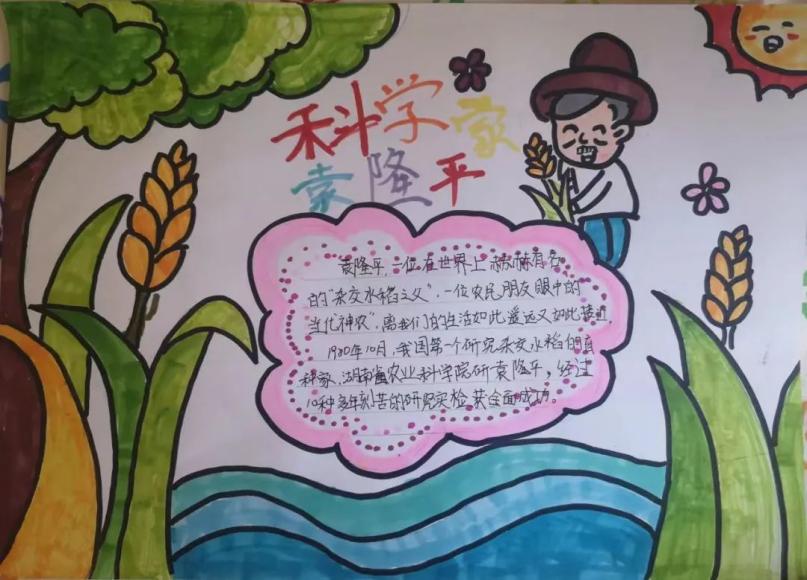 科学家
袁隆平
袁隆平，一位在世界上赫赫有名
的“杂交水稻之父”，一位农民朋友眼中的
当代神农”，离我们的生活如此遥远又如此接近，
1980年10月，我国第一个研究杂交水稻的育
种家，湖南省农业科学院研袁隆平，经过
10种多年刻苦的研究实检 获全面成功。